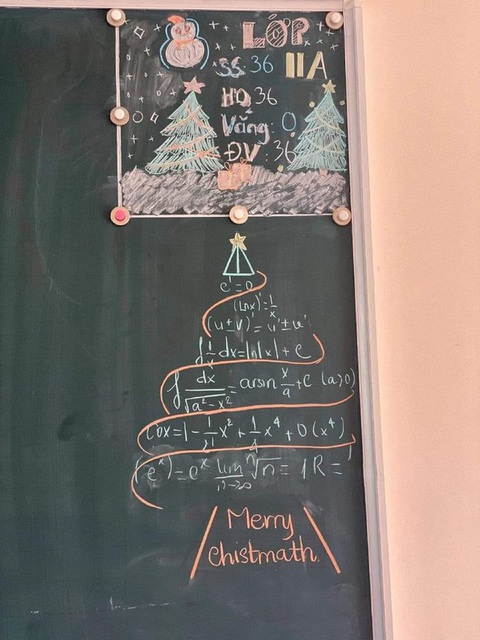 LỚP
SS: 36 11A
HD 36
Vắng: 0
ĐV: 36
c' = 0
(lnx)' = 1/x
(u±v)' = u'±v'
∫ 1/x dx = ln|x| + c
∫ dx/√(a²-x²) = arsin x/a + c (a>0)
Cox = 1 - 1/2! x² + 1/4 x⁴ + 0(x⁴)
(eˣ)' = eˣ lim n→∞ ⁿ√n = 1 R =
Merry
chistmath.